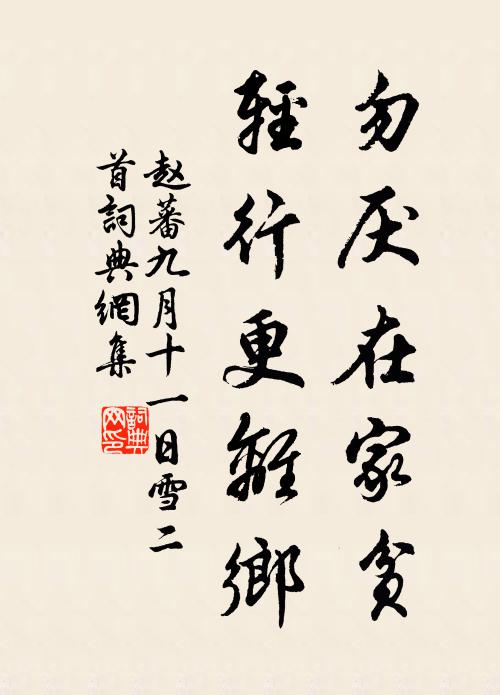 勿厌在家貧
輕行更離鄉
赵蕃九月十一日雪二
首詞典網集
詞典
网印